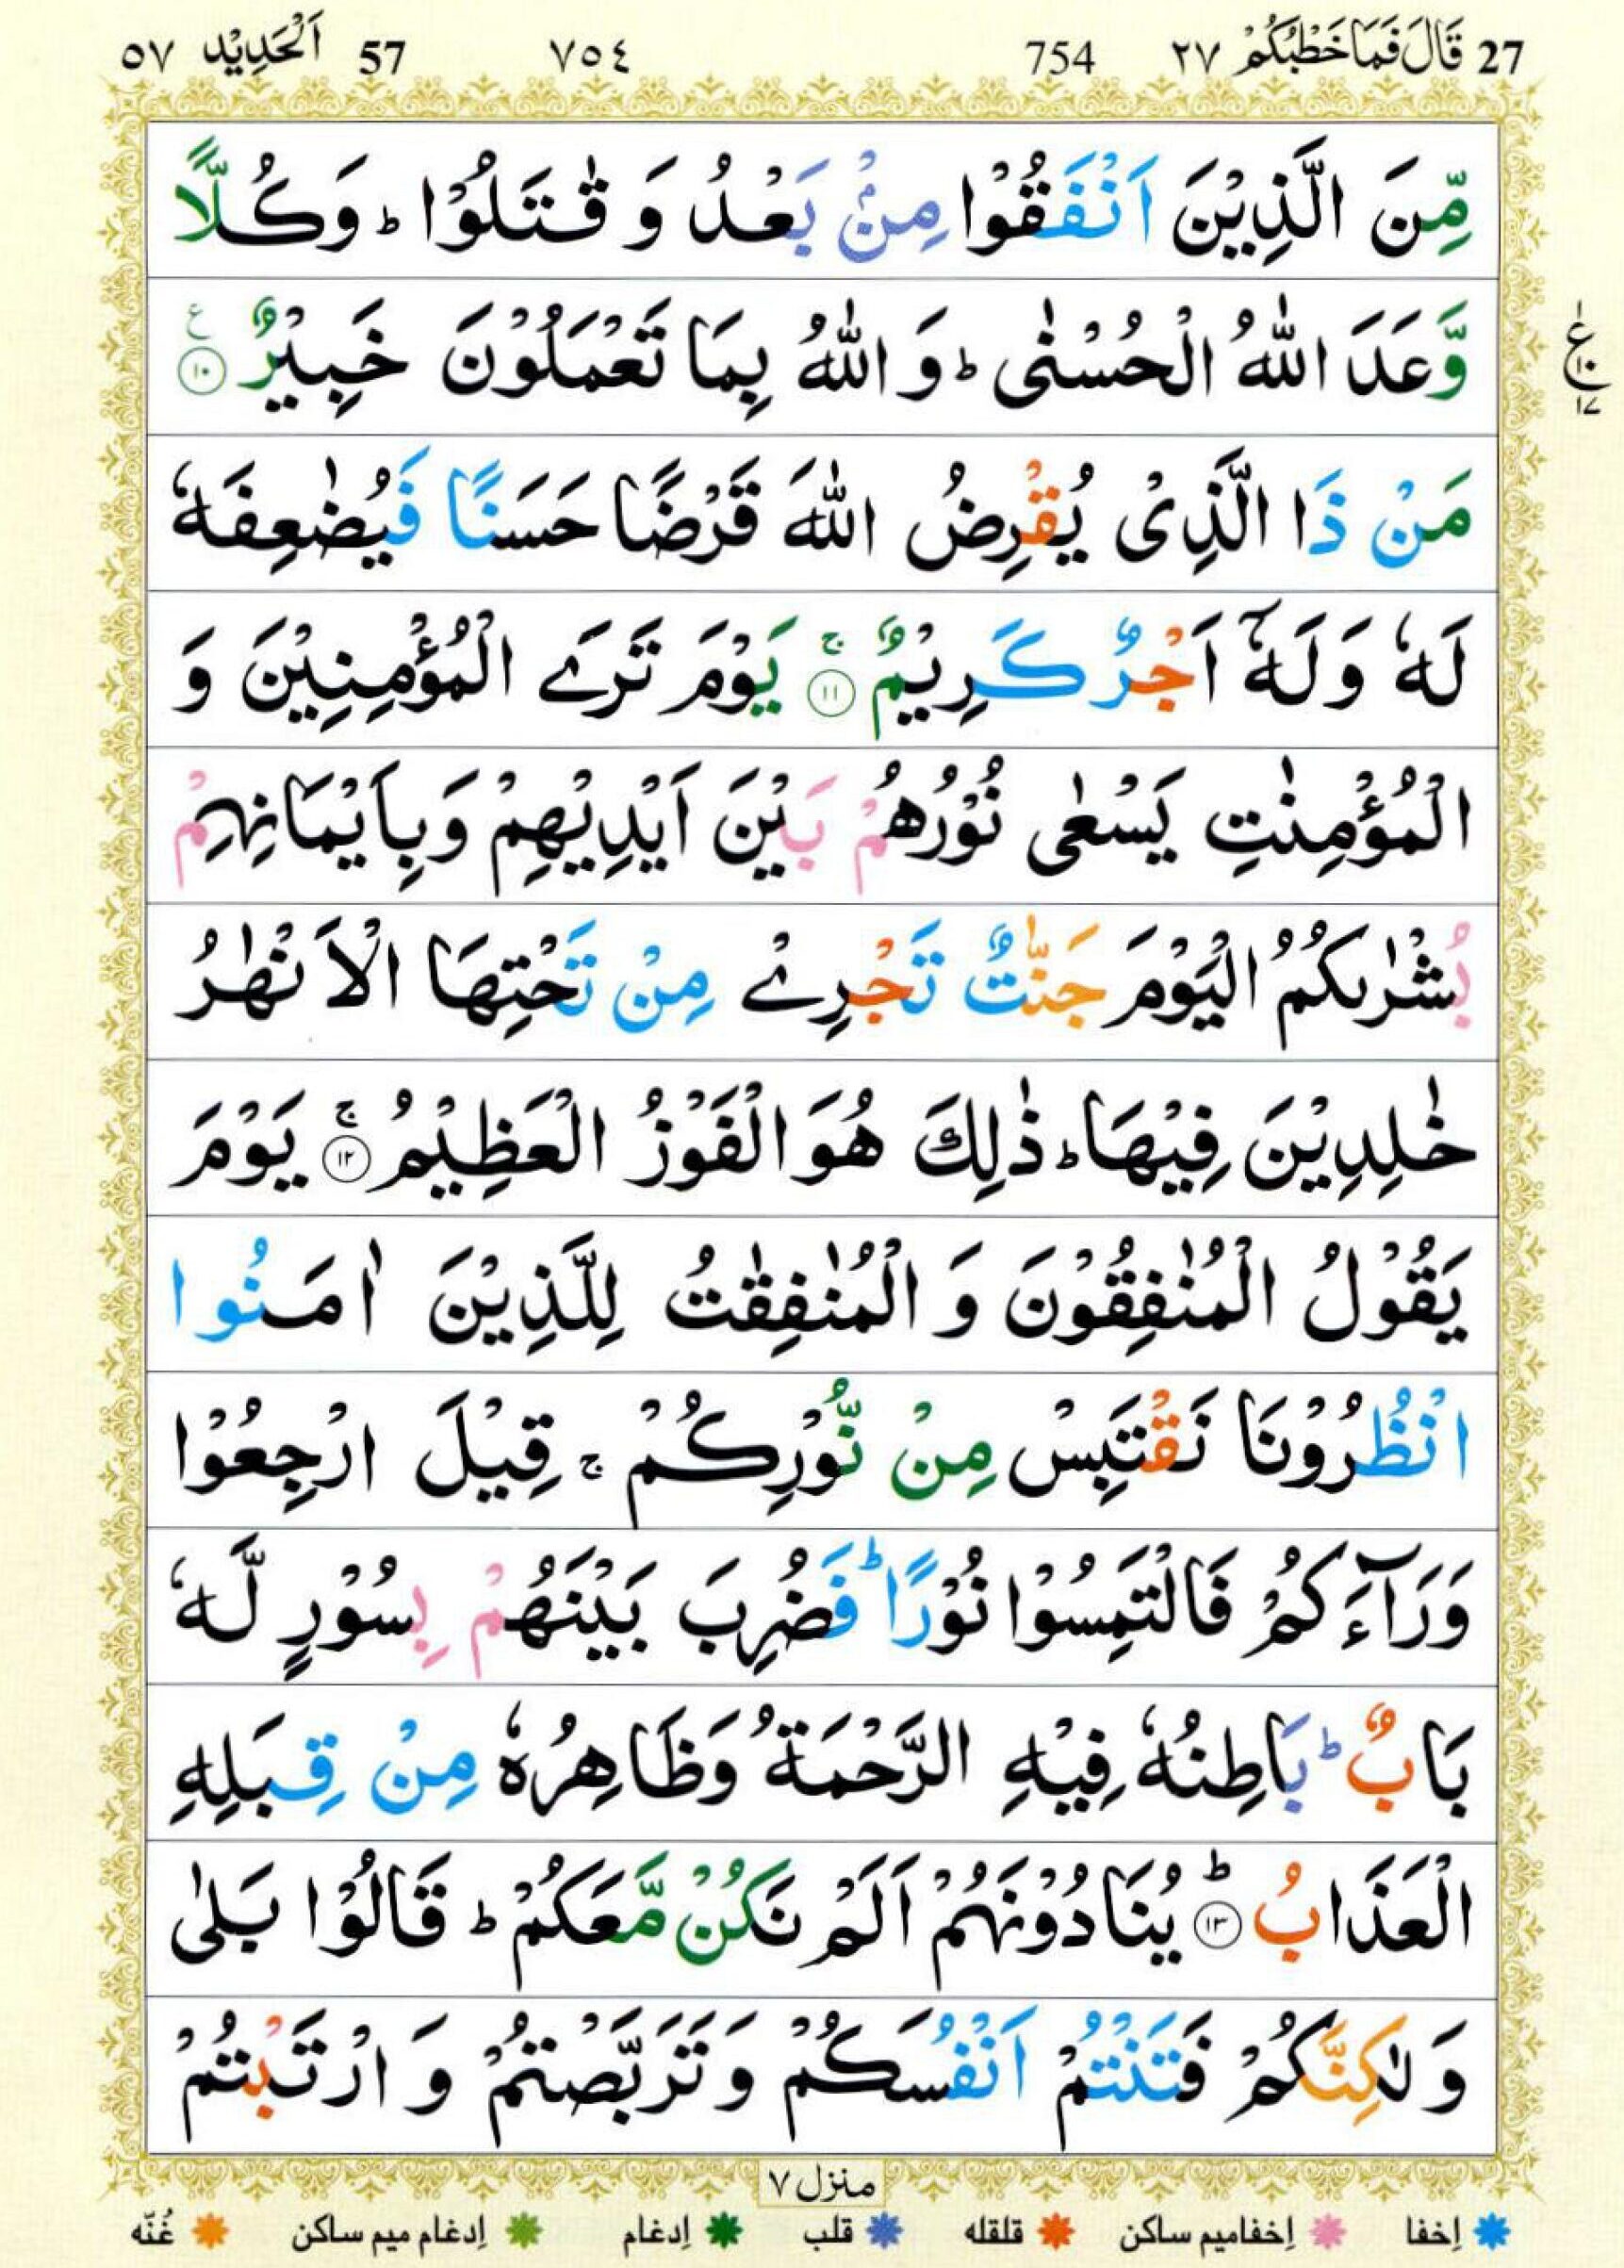 27 قَالَ فَمَا خَطْبُكُمْ ٢٧ 754 ٧٥٤ 57 اَلْحَدِيْد ٥٧
مِّنَ الَّذِيْنَ اَنْفَقُوْا مِنْۢ بَعْدُ وَ قٰتَلُوْا ؕ وَكُلًّا
وَّعَدَ اللّٰهُ الْحُسْنٰى ؕ وَ اللّٰهُ بِمَا تَعْمَلُوْنَ خَبِيْرٌ ࣖ ۝۱۰
ع ١٠ ١٧
مَنْ ذَا الَّذِىْ يُقْرِضُ اللّٰهَ قَرْضًا حَسَنًا فَيُضٰعِفَهٗ
لَهٗ وَلَهٗۤ اَجْرٌ كَرِيْمٌ ۚ ۝۱۱ يَوْمَ تَرَى الْمُؤْمِنِيْنَ وَ
الْمُؤْمِنٰتِ يَسْعٰى نُوْرُهُمْ بَيْنَ اَيْدِيْهِمْ وَبِاَيْمَانِهِمْ
بُشْرٰىكُمُ الْيَوْمَ جَنّٰتٌ تَجْرِىْ مِنْ تَحْتِهَا الْاَنْهٰرُ
خٰلِدِيْنَ فِيْهَا ؕ ذٰلِكَ هُوَ الْفَوْزُ الْعَظِيْمُ ۚ ۝۱۲ يَوْمَ
يَقُوْلُ الْمُنٰفِقُوْنَ وَ الْمُنٰفِقٰتُ لِلَّذِيْنَ اٰمَنُوا
انْظُرُوْنَا نَقْتَبِسْ مِنْ نُّوْرِكُمْ ۚ قِيْلَ ارْجِعُوْا
وَرَآءَكُمْ فَالْتَمِسُوْا نُوْرًا ؕ فَضُرِبَ بَيْنَهُمْ بِسُوْرٍ لَّهٗ
بَابٌ ؕ بَاطِنُهٗ فِيْهِ الرَّحْمَةُ وَظَاهِرُهٗ مِنْ قِبَلِهِ
الْعَذَابُ ؕ ۝۱۳ يُنَادُوْنَهُمْ اَلَمْ نَكُنْ مَّعَكُمْ ؕ قَالُوْا بَلٰى
وَلٰكِنَّكُمْ فَتَنْتُمْ اَنْفُسَكُمْ وَتَرَبَّصْتُمْ وَ ارْتَبْتُمْ
منزل ٧
اِخفا اِخفامیم ساکن قلقله قلب اِدغام اِدغام میم ساکن غُنّه